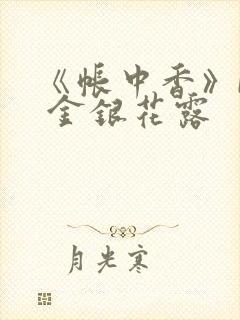 《帐中香》
金银花露
月光寒